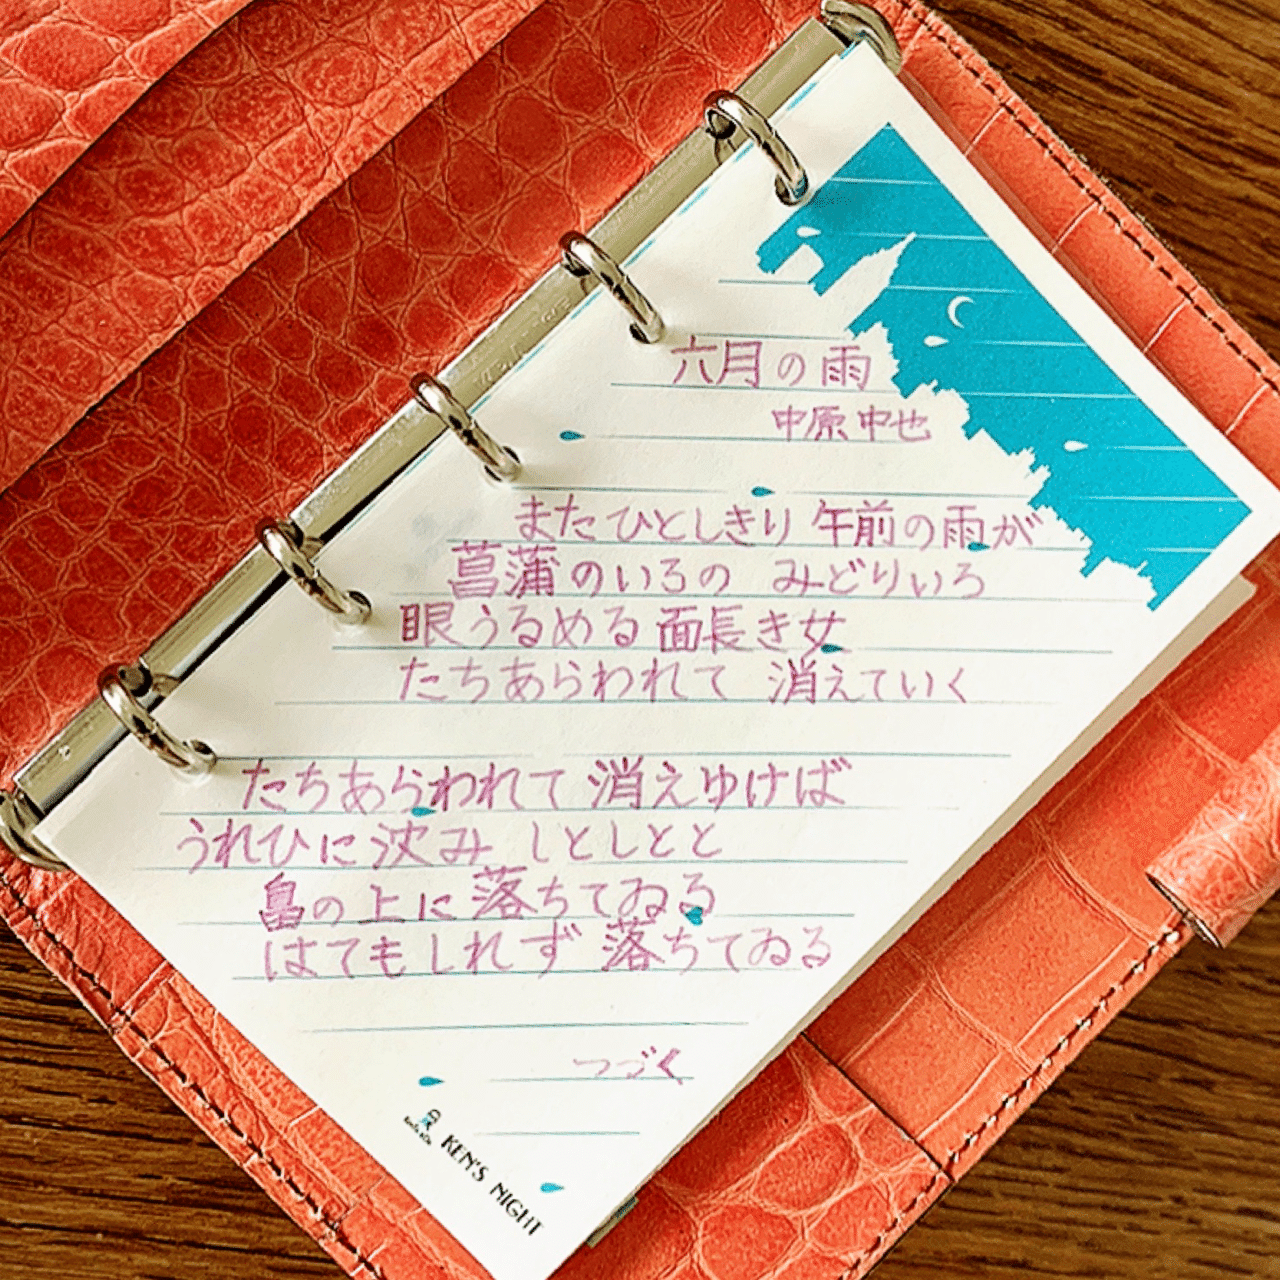 六月の雨
中原中也
またひとしきり 午前の雨が
菖蒲のいろの みどりいろ
眼うるめる 面長き女
たちあらわれて 消えていく
たちあらわれて 消えゆけば
うれひに沈み しとしとと
畠の上に 落ちてゐる
はてもしれず 落ちてゐる
つづく
KEN'S NIGHT